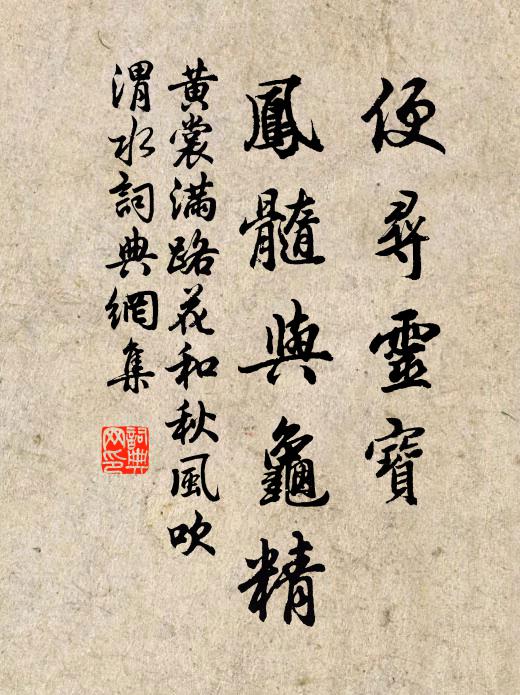 便尋靈寶
鳳髓與龜精
黃裳滿路花和秋風吹
渭水詞典網集
詞典網印